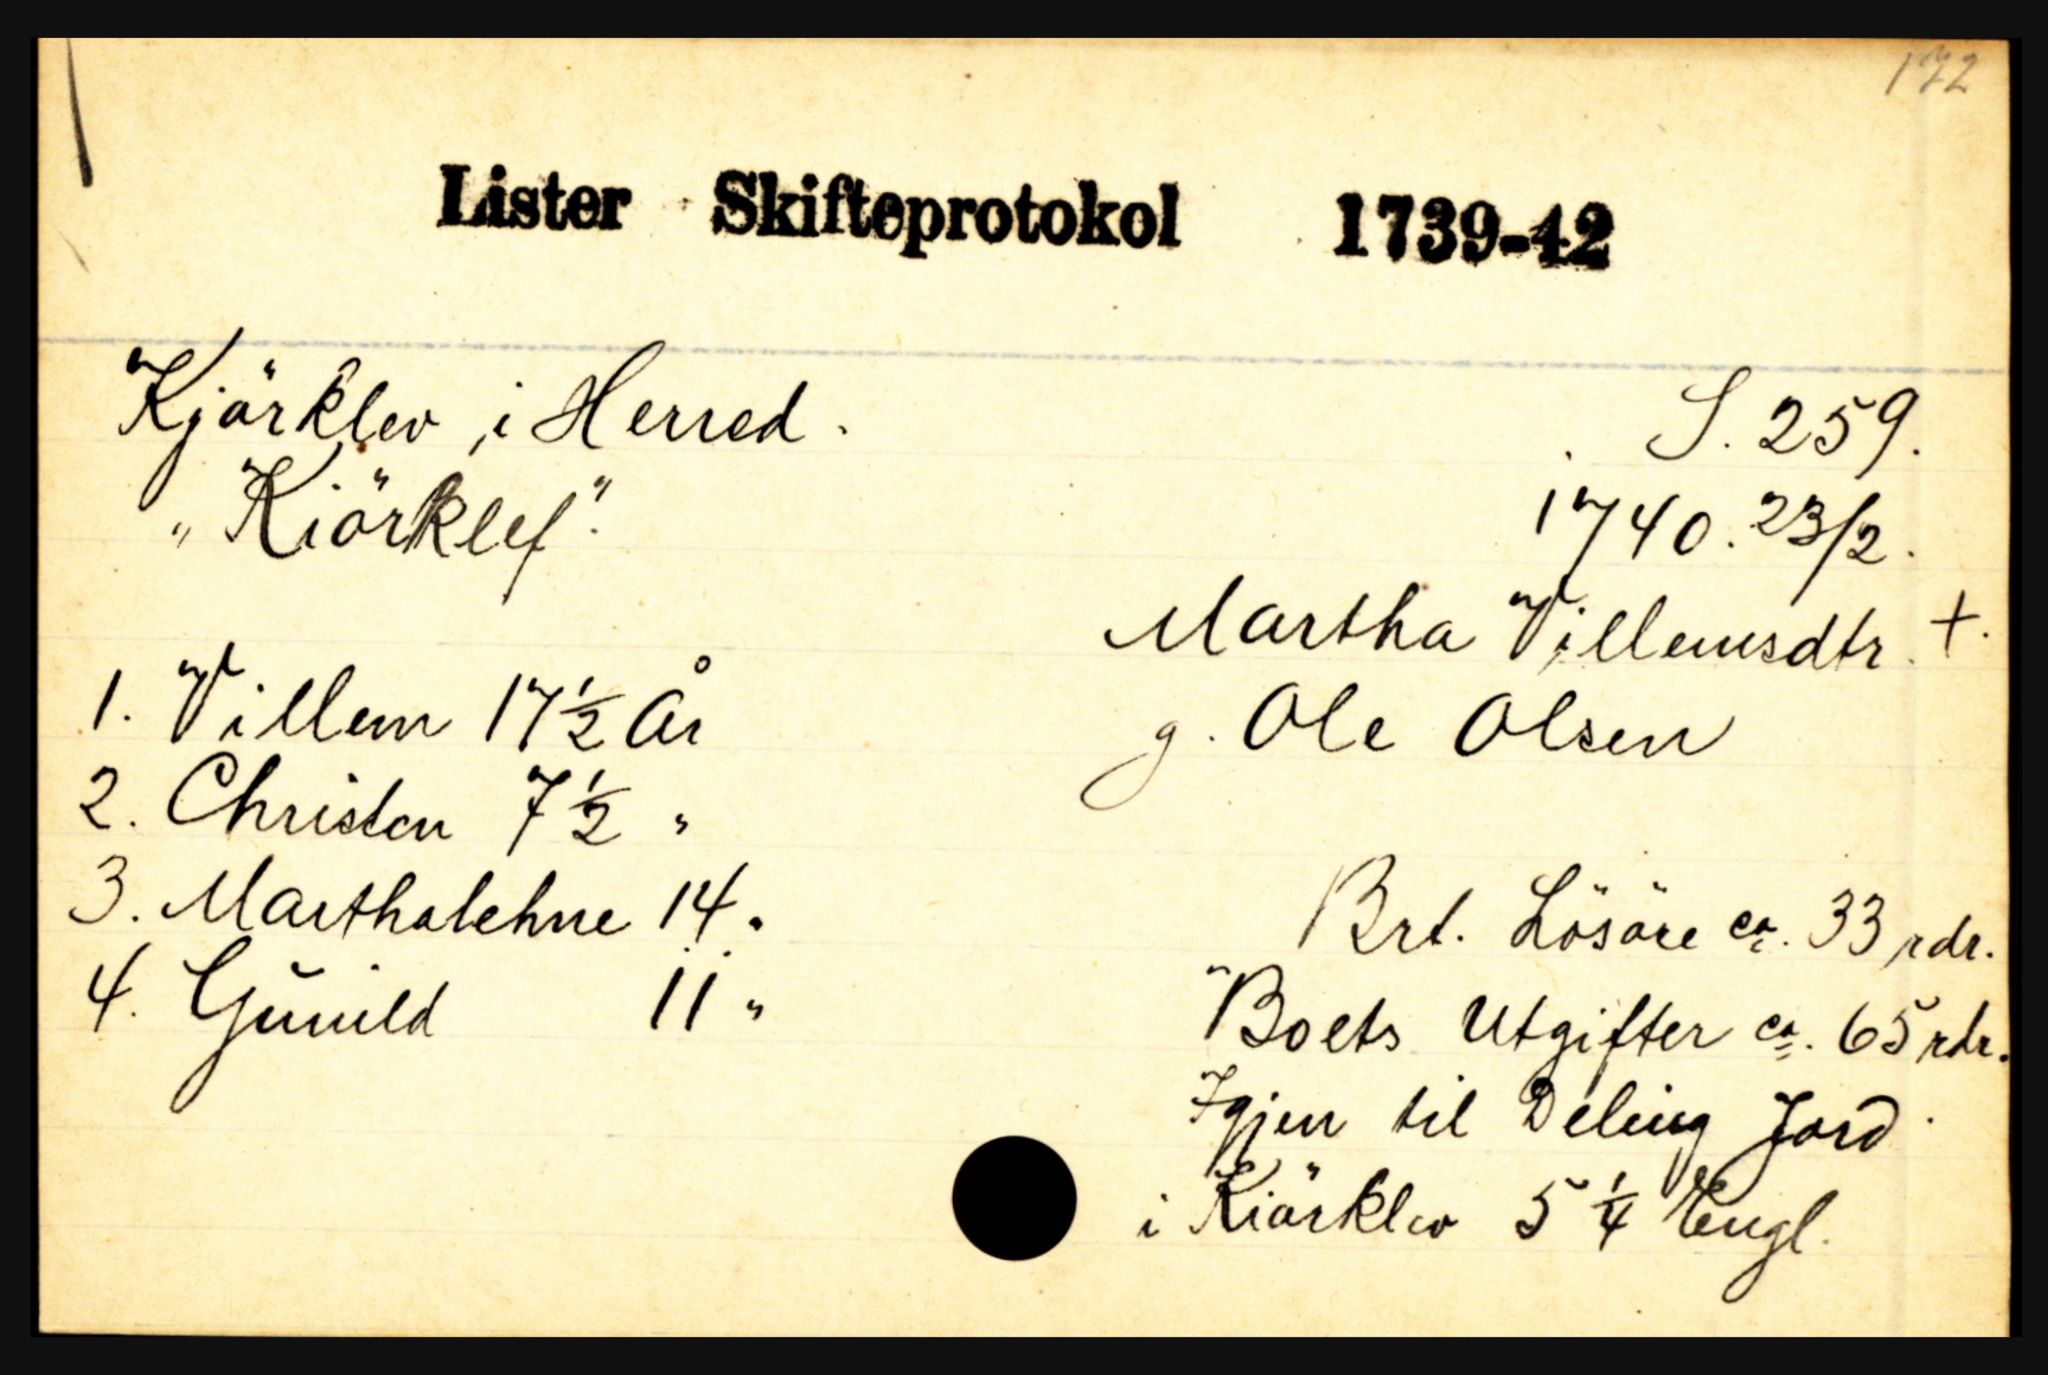 172
Lister Skifteprotokol 1739-42
Kjörklev, i Herred.
S. 259.
"Kiörklef".
1740. 23/2.
Martha Villemsdtr. +.
g. Ole Olsen
1. Villem 17 1/2 År
2. Christen 7 1/2 "
3. Marthalehne 14 "
4. Gŭnild 11 "
Brt. Lösöre ca. 33 rdr.
Boets Utgifter ca. 65 rdr.
Igjen til Deling Jord
i Kiörklev 5 1/4 Engl.